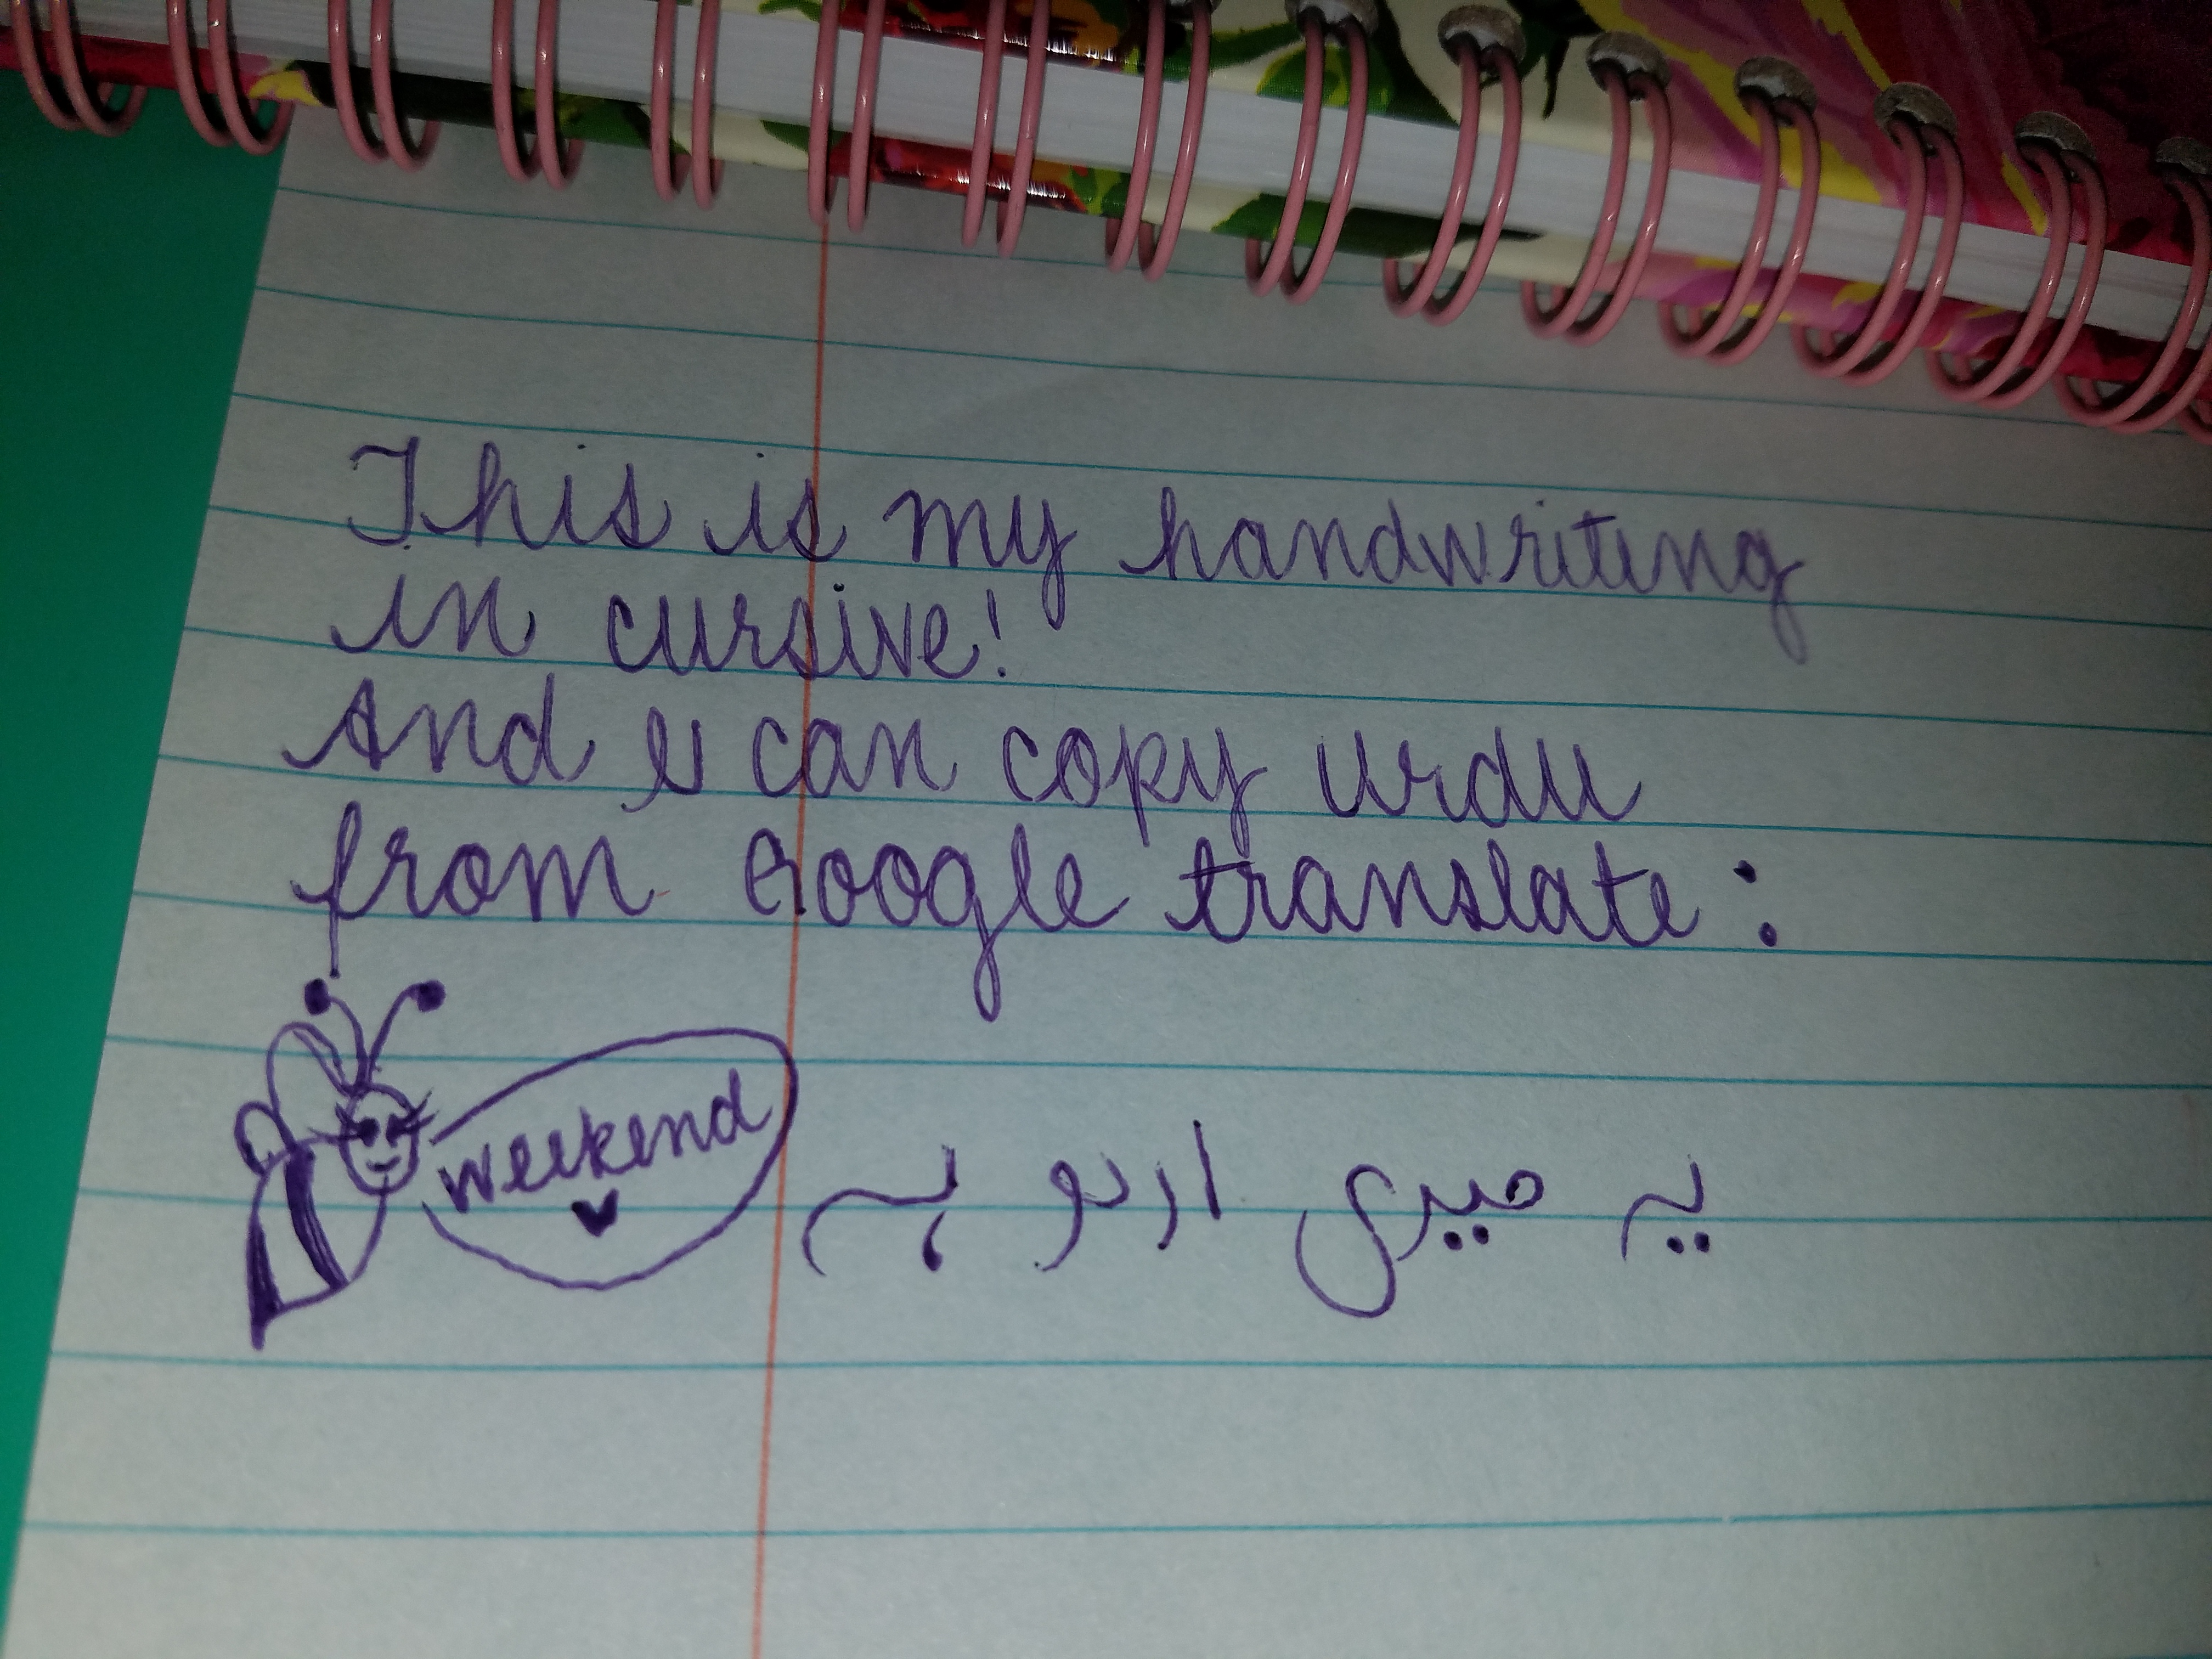 This is my handwriting
in cursive!
And I can copy urdu
from Google translate:
weekend
یہ میری اردو ہے